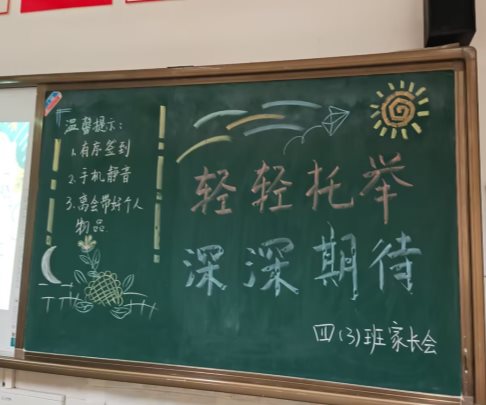 温馨提示：
1. 有序签到
2. 手机静音
3. 离会带好个人
物品
轻轻托举
深深期待
四(3)班家长会